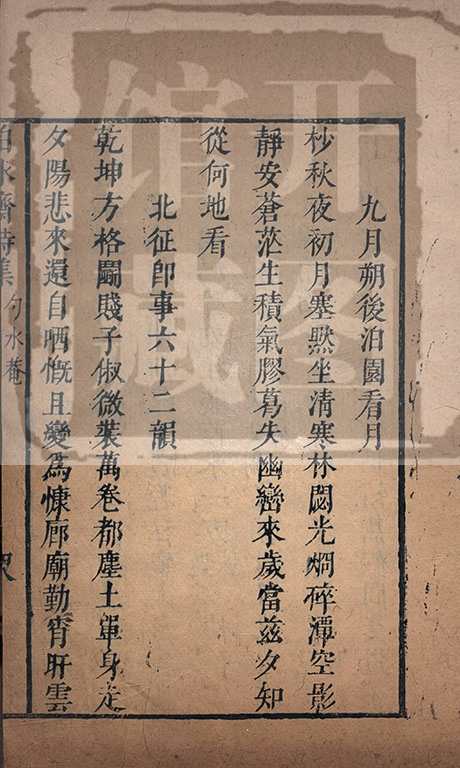 九月朔後泊園看月
杪秋夜初月塞默坐清寒林閟光烱碎潭空影
靜安蒼茫生積氣膠葛失幽巒來歲當茲夕知
從何地看
北征卽事六十二韻
乾坤方格鬭賤子俶微裝萬卷都塵土單身走
夕陽悲來還自哂慨且變爲慷廊廟勤宵旰雲
白水齋詩集 勺水菴
開圖
館藏